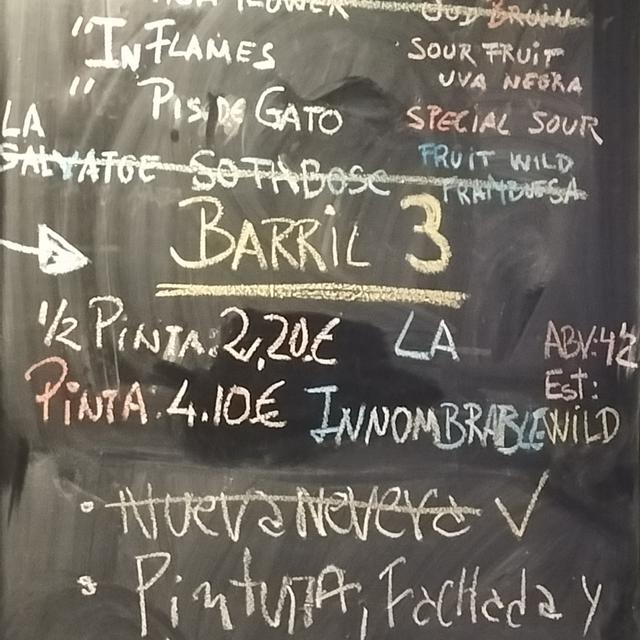 FLOWER OUD BRUIN
"INFLAMES SOUR FRUIT
UVA NEGRA
" PIS DE GATO SPECIAL SOUR
LA
SALVATGE SOTABOSC FRUIT WILD
FRAMBUESA
BARRIL 3
1/2 PINTA: 2,20€ LA ABV:4%
PINTA: 4.10€ INNOMBRABLE Est: WILD
• Nueva Nevera ✓
• Pintura, Fachada y